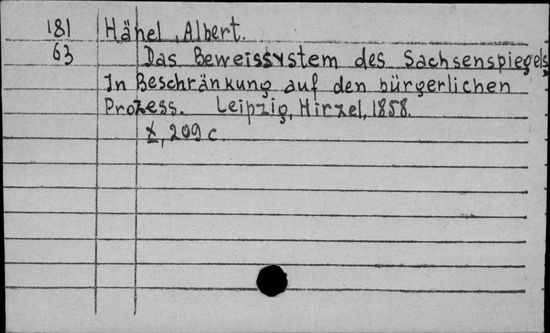 181 Hähel, Albert.
63 Das Beweissystem des Sachsenspiegels
In Beschränkung auf den bürgerlichen
Prozess. Leipzig, Hirzel, 1858.
X, 209 c.